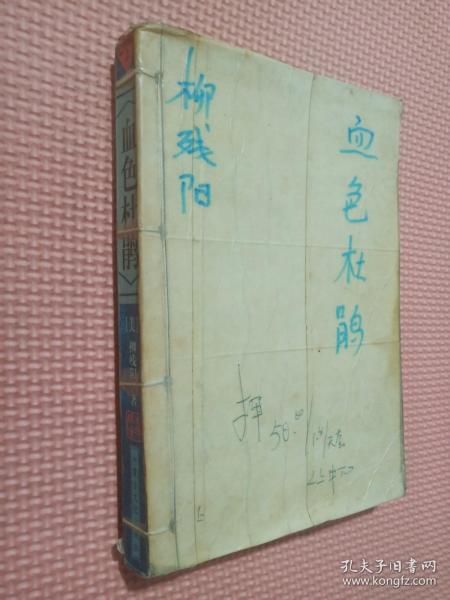 柳残阳
血色杜鹃
押 50.00
上
《血色杜鹃》
[美] 柳残阳 著
孔夫子旧书网
www.kongfz.com